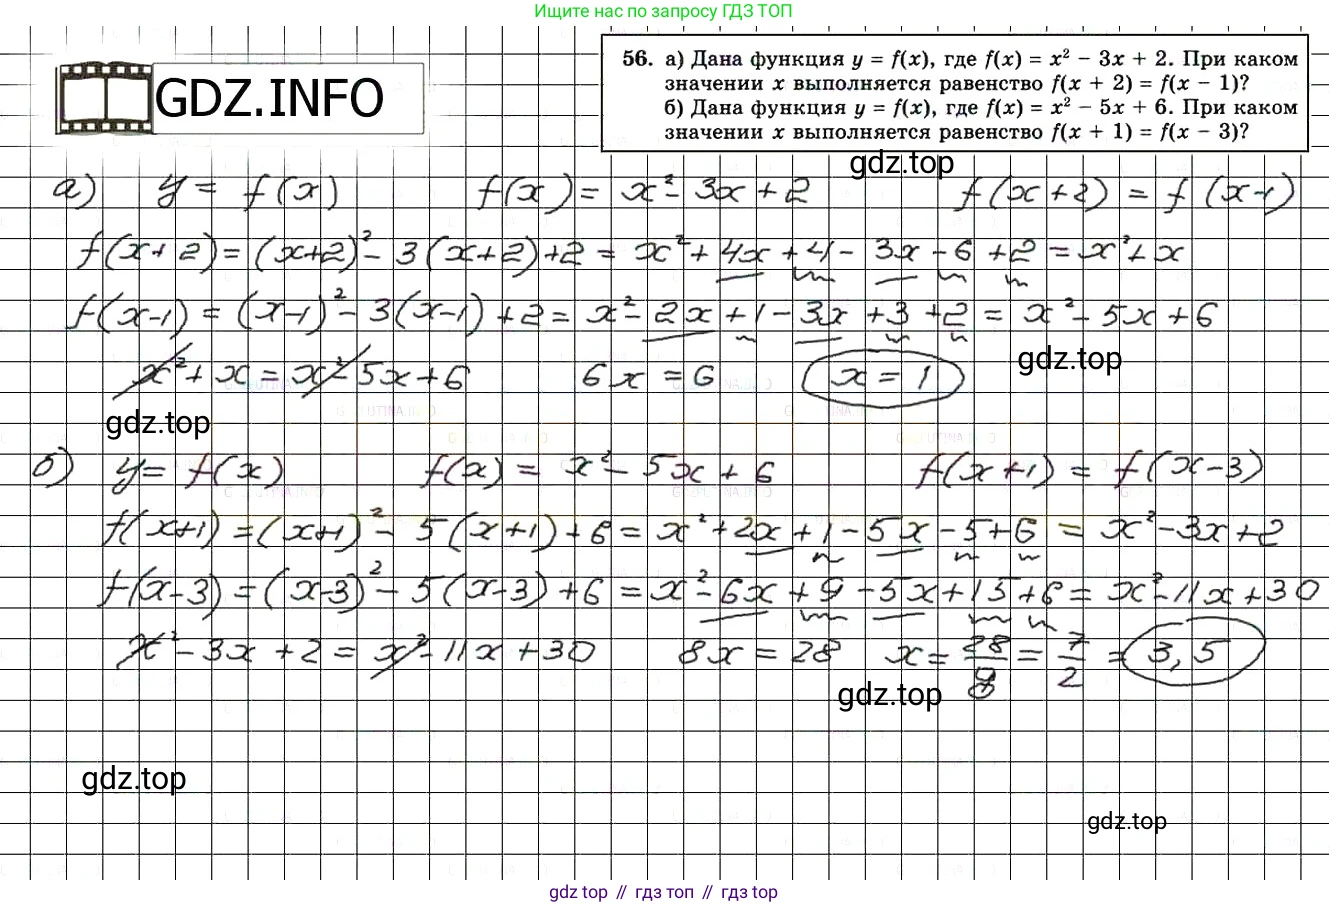 Ищите нас по запросу ГДЗ ТОП
GDZ.INFO
56. а) Дана функция y = f(x), где f(x) = x² − 3x + 2. При каком
значении x выполняется равенство f(x + 2) = f(x − 1)?
б) Дана функция y = f(x), где f(x) = x² − 5x + 6. При каком
значении x выполняется равенство f(x + 1) = f(x − 3)?
gdz.top
а) y = f(x) f(x) = x² − 3x + 2 f(x+2) = f(x−1)
f(x+2) = (x+2)² − 3(x+2) + 2 = x² + 4x + 4 − 3x − 6 + 2 = x² + x
f(x−1) = (x−1)² − 3(x−1) + 2 = x² − 2x + 1 − 3x + 3 + 2 = x² − 5x + 6
gdz.top
x² + x = x² − 5x + 6 6x = 6 x = 1
gdz.top
б) y = f(x) f(x) = x² − 5x + 6 f(x+1) = f(x−3)
f(x+1) = (x+1)² − 5(x+1) + 6 = x² + 2x + 1 − 5x − 5 + 6 = x² − 3x + 2
f(x−3) = (x−3)² − 5(x−3) + 6 = x² − 6x + 9 − 5x + 15 + 6 = x² − 11x + 30
x² − 3x + 2 = x² − 11x + 30 8x = 28 x = 28/8 = 7/2 = 3,5
gdz.top
gdz.top
gdz.top
gdz top // гдз топ // гдз top